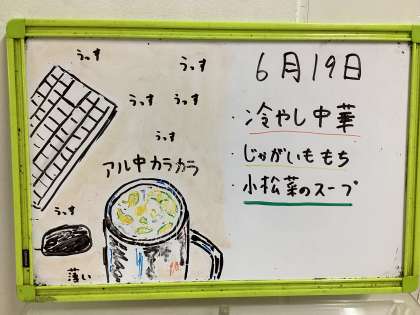 うっす
うっす
うっす うっす
うっす
アル中カラカラ
うっす
薄い
6月19日
・冷やし中華
・じゃがいももち
・小松菜のスープ